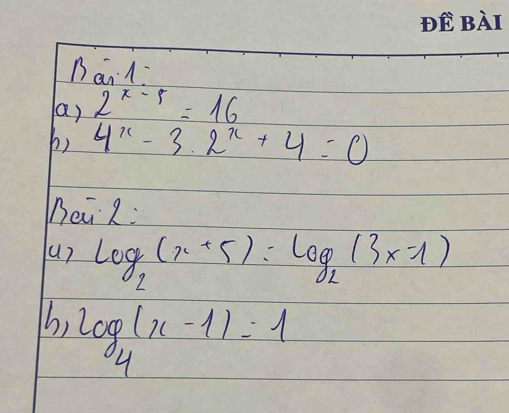 ĐỀ BÀI
Bài 1:
a) 2^{x-5} = 16
b) 4^x - 3.2^x + 4 = 0
Bài 2:
a) log_2 (x + 5) = log_2 (3x - 1)
b) log_4 (x - 1) = 1